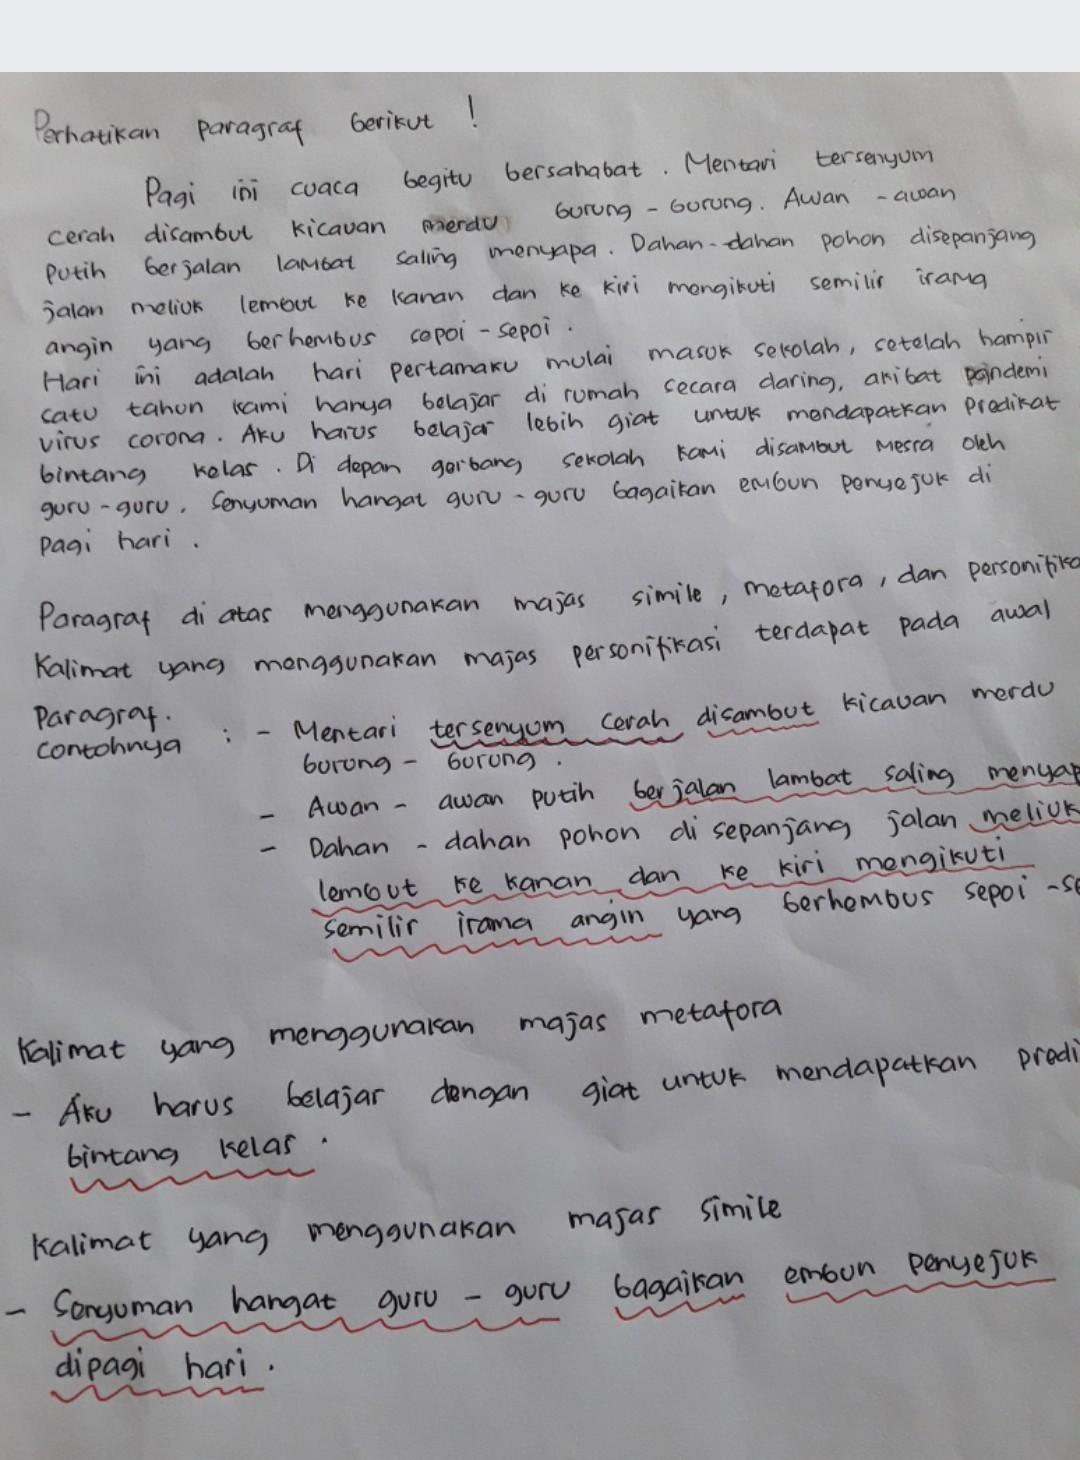 Perhatikan paragraf berikut !
Pagi ini cuaca begitu bersahabat . Mentari tersenyum
cerah disambut kicauan merdu burung - burung. Awan - awan
putih berjalan lambat saling menyapa . Dahan-dahan pohon disepanjang
jalan meliuk lembut ke kanan dan ke kiri mengikuti semilir irama
angin yang berhembus sepoi - sepoi .
Hari ini adalah hari pertamaku mulai masuk sekolah, setelah hampir
satu tahun kami hanya belajar di rumah secara daring, akibat pandemi
virus corona . Aku harus belajar lebih giat untuk mendapatkan predikat
bintang kelas . Di depan gerbang sekolah kami disambut mesra oleh
guru - guru . Senyuman hangat guru - guru bagaikan embun penyejuk di
pagi hari .
Paragraf di atas menggunakan majas simile , metafora , dan personifika
Kalimat yang menggunakan majas personifikasi terdapat pada awal
paragraf.
contohnya : - Mentari tersenyum cerah disambut kicauan merdu
burung - burung .
- Awan - awan putih berjalan lambat saling menyap
- Dahan - dahan pohon di sepanjang jalan meliuk
lembut ke kanan dan ke kiri mengikuti
semilir irama angin yang berhembus sepoi - se
Kalimat yang menggunakan majas metafora
- Aku harus belajar dengan giat untuk mendapatkan predi
bintang kelas .
Kalimat yang menggunakan majas simile
- Senyuman hangat guru - guru bagaikan embun penyejuk
dipagi hari .